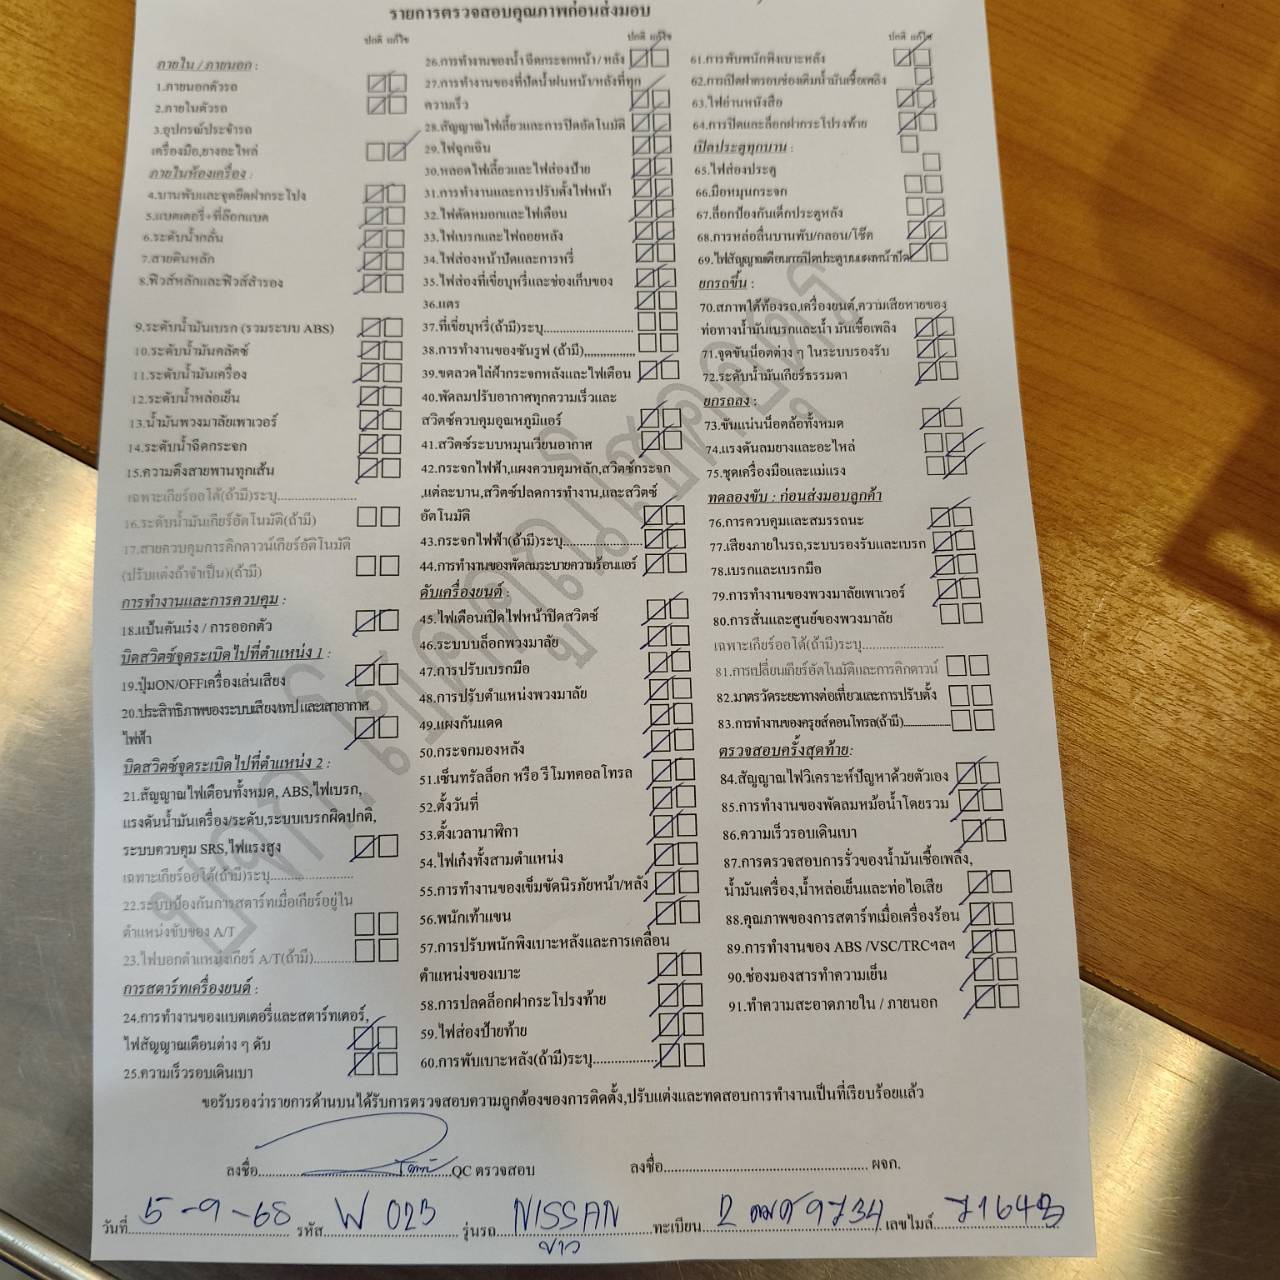 รายการตรวจสอบคุณภาพก่อนส่งมอบ
ปกติ แก้ไข
ภายใน / ภายนอก :
1.ภายนอกตัวรถ
2.ภายในตัวรถ
3.อุปกรณ์ประจำรถ
เครื่องมือ,ยางอะไหล่
ภายในห้องเครื่อง :
4.บานพับและจุดยึดฝากระโปง
5.แบตเตอรี่+ที่ล๊อกแบต
6.ระดับน้ำกลั่น
7.สายดินหลัก
8.ฟิวส์หลักและฟิวส์สำรอง
9.ระดับน้ำมันเบรก (รวมระบบ ABS)
10.ระดับน้ำมันคลัตซ์
11.ระดับน้ำมันเครื่อง
12.ระดับน้ำหล่อเย็น
13.น้ำมันพวงมาลัยเพาเวอร์
14.ระดับน้ำฉีดกระจก
15.ความตึงสายพานทุกเส้น
เฉพาะเกียร์ออโต้(ถ้ามี)ระบุ......................
16.ระดับน้ำมันเกียร์อัตโนมัติ(ถ้ามี)
17.สายควบคุมการคิกดาวน์เกียร์อัติโนมัติ
(ปรับแต่งถ้าจำเป็น)(ถ้ามี)
การทำงานและการควบคุม :
18.แป้นคันเร่ง / การออกตัว
บิดสวิตซ์จุดระเบิดไปที่ตำแหน่ง 1 :
19.ปุ่มON/OFFเครื่องเล่นเสียง
20.ประสิทธิภาพของระบบเสียง/เทป และเสาอากาศ
ไฟฟ้า
บิดสวิตซ์จุดระเบิดไปที่ตำแหน่ง 2 :
21.สัญญาณไฟเตือนทั้งหมด, ABS,ไฟเบรก,
แรงดันน้ำมันเครื่อง/ระดับ,ระบบเบรกผิดปกติ,
ระบบควบคุม SRS,ไฟแรงสูง
เฉพาะเกียร์ออโต้(ถ้ามี)ระบุ......................
22.ระบบป้องกันการสตาร์ทเมื่อเกียร์อยู่ใน
ตำแหน่งขับของ A/T
23.ไฟบอกตำแหน่งเกียร์ A/T(ถ้ามี)............
การสตาร์ทเครื่องยนต์ :
24.การทำงานของแบตเตอรี่และสตาร์ทเตอร์,
ไฟสัญญาณเตือนต่าง ๆ ดับ
25.ความเร็วรอบเดินเบา
ปกติ แก้ไข
26.การทำงานของน้ำ ฉีดกระจกหน้า/ หลัง
27.การทำงานของที่ปัดน้ำฝนหน้า/หลังที่ทุก
ความเร็ว
28.สัญญาณไฟเลี้ยวและการปิดอัตโนมัติ
29.ไฟฉุกเฉิน
30.หลอดไฟเลี้ยวและไฟส่องป้าย
31.การทำงานและการปรับตั้งไฟหน้า
32.ไฟตัดหมอกและไฟเตือน
33.ไฟเบรกและไฟถอยหลัง
34.ไฟส่องหน้าปัดและการหรี่
35.ไฟส่องที่เขี่ยบุหรี่และช่องเก็บของ
36.แตร
37.ที่เขี่ยบุหรี่(ถ้ามี)ระบุ........................
38.การทำงานของซันรูฟ (ถ้ามี)...............
39.ขดลวดไล่ฝ้ากระจกหลังและไฟเตือน
40.พัดลมปรับอากาศทุกความเร็วและ
สวิตซ์ควบคุมอุณหภูมิแอร์
41.สวิตซ์ระบบหมุนเวียนอากาศ
42.กระจกไฟฟ้า,แผงควบคุมหลัก,สวิตซ์กระจก
,แต่ละบาน,สวิตซ์ปลดการทำงาน,และสวิตซ์
อัตโนมัติ
43.กระจกไฟฟ้า(ถ้ามี)ระบุ......................
44.การทำงานของพัดลมระบายความร้อนแอร์
ดับเครื่องยนต์ :
45.ไฟเตือนเปิดไฟหน้าปิดสวิตซ์
46.ระบบบล็อกพวงมาลัย
47.การปรับเบรกมือ
48.การปรับตำแหน่งพวงมาลัย
49.แผงกันแดด
50.กระจกมองหลัง
51.เซ็นทรัลล็อก หรือ รีโมทคอลโทรล
52.ตั้งวันที่
53.ตั้งเวลานาฬิกา
54.ไฟเก๋งทั้งสามตำแหน่ง
55.การทำงานของเข็มขัดนิรภัยหน้า/หลัง
56.พนักเท้าแขน
57.การปรับพนักพิงเบาะหลังและการเคลื่อน
ตำแหน่งของเบาะ
58.การปลดล็อกฝากระโปรงท้าย
59.ไฟส่องป้ายท้าย
60.การพับเบาะหลัง(ถ้ามี)ระบุ..................
ปกติ แก้ไข
61.การพับพนักพิงเบาะหลัง
62.การเปิดฝาครอบช่องเติมน้ำมันเชื้อเพลิง
63.ไฟอ่านหนังสือ
64.การปิดและล็อกฝากระโปรงท้าย
เปิดประตูทุกบาน :
65.ไฟส่องประตู
66.มือหมุนกระจก
67.ล็อกป้องกันเด็กประตูหลัง
68.การหล่อลื่นบานพับ/กลอน/โช๊ต
69.ไฟสัญญาณเตือนการปิดประตูบนแผงหน้าปัด
ยกรถขึ้น :
70.สภาพใต้ท้องรถ,เครื่องยนต์,ความเสียหายของ
ท่อทางน้ำมันเบรกและน้ำ มันเชื้อเพลิง
71.จุดขันน็อตต่าง ๆ ในระบบรองรับ
72.ระดับน้ำมันเกียร์ธรรมดา
ยกรถลง :
73.ขันแน่นน็อตล้อทั้งหมด
74.แรงดันลมยางและอะไหล่
75.ชุดเครื่องมือและแม่แรง
ทดลองขับ : ก่อนส่งมอบลูกค้า
76.การควบคุมและสมรรถนะ
77.เสียงภายในรถ,ระบบรองรับและเบรก
78.เบรกและเบรกมือ
79.การทำงานของพวงมาลัยเพาเวอร์
80.การสั่นและศูนย์ของพวงมาลัย
เฉพาะเกียร์ออโต้(ถ้ามี)ระบุ......................
81.การเปลี่ยนเกียร์อัตโนมัติและการคิกดาวน์
82.มาตรวัดระยะทางต่อเที่ยวและการปรับตั้ง
83.การทำงานของครุยส์คอนโทรล(ถ้ามี)...............
ตรวจสอบครั้งสุดท้าย:
84.สัญญาณไฟวิเคราะห์ปัญหาด้วยตัวเอง
85.การทำงานของพัดลมหม้อน้ำโดยรวม
86.ความเร็วรอบเดินเบา
87.การตรวจสอบการรั่วของน้ำมันเชื้อเพลิง,
น้ำมันเครื่อง,น้ำหล่อเย็นและท่อไอเสีย
88.คุณภาพของการสตาร์ทเมื่อเครื่องร้อน
89.การทำงานของ ABS /VSC/TRCฯลฯ
90.ช่องมองสารทำความเย็น
91.ทำความสะอาดภายใน / ภายนอก
ขอรับรองว่ารายการด้านบนได้รับการตรวจสอบความถูกต้องของการติดตั้ง,ปรับแต่งและทดสอบการทำงานเป็นที่เรียบร้อยแล้ว
ลงชื่อ..................QC ตรวจสอบ
ลงชื่อ.................................................. ผจก.
วันที่ 5-9-68 รหัส W 023 รุ่นรถ NISSAN ทะเบียน 2 9734 เลขไมล์ 71643
ขาว